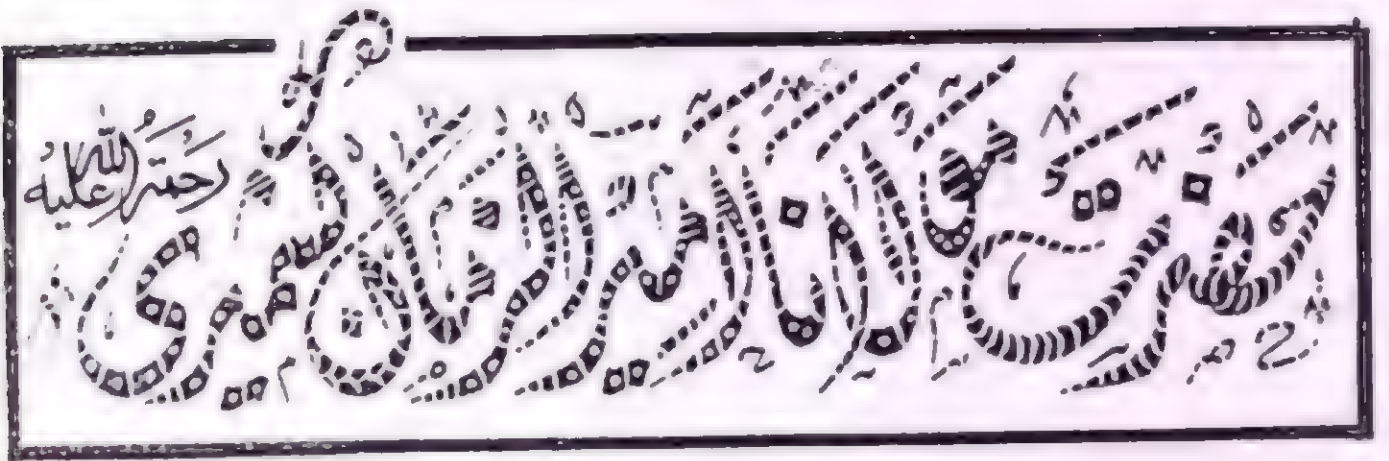 حضرت مولانا امیر الزمان کشمیری رحمتہ اللہ علیہ